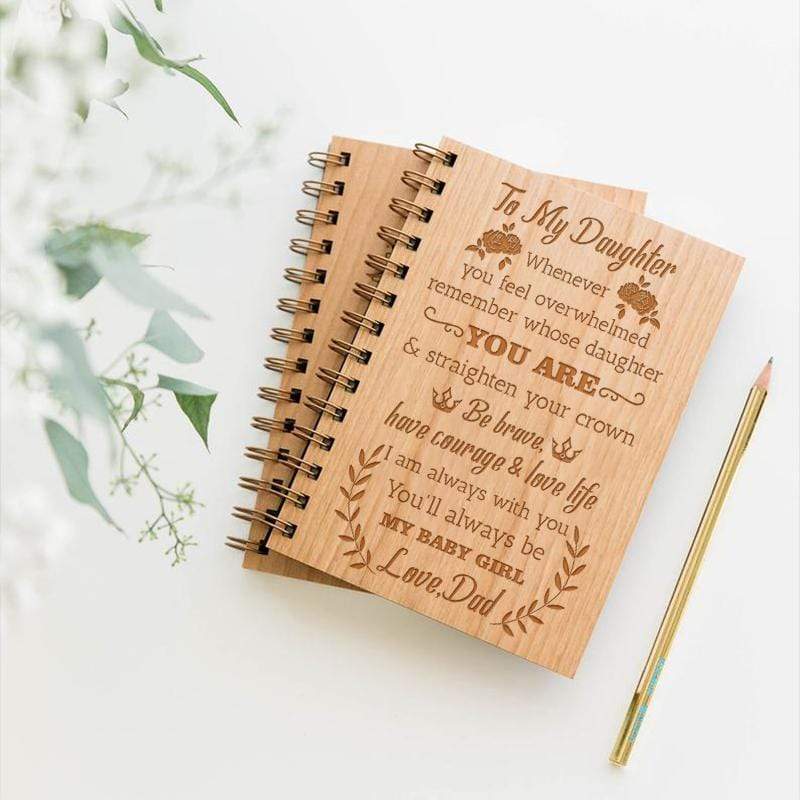 To My Daughter
Whenever
you feel overwhelmed
remember whose daughter
YOU ARE
& straighten your crown
Be brave,
have courage & love life
I am always with you
You'll always be
MY BABY GIRL
Love, Dad